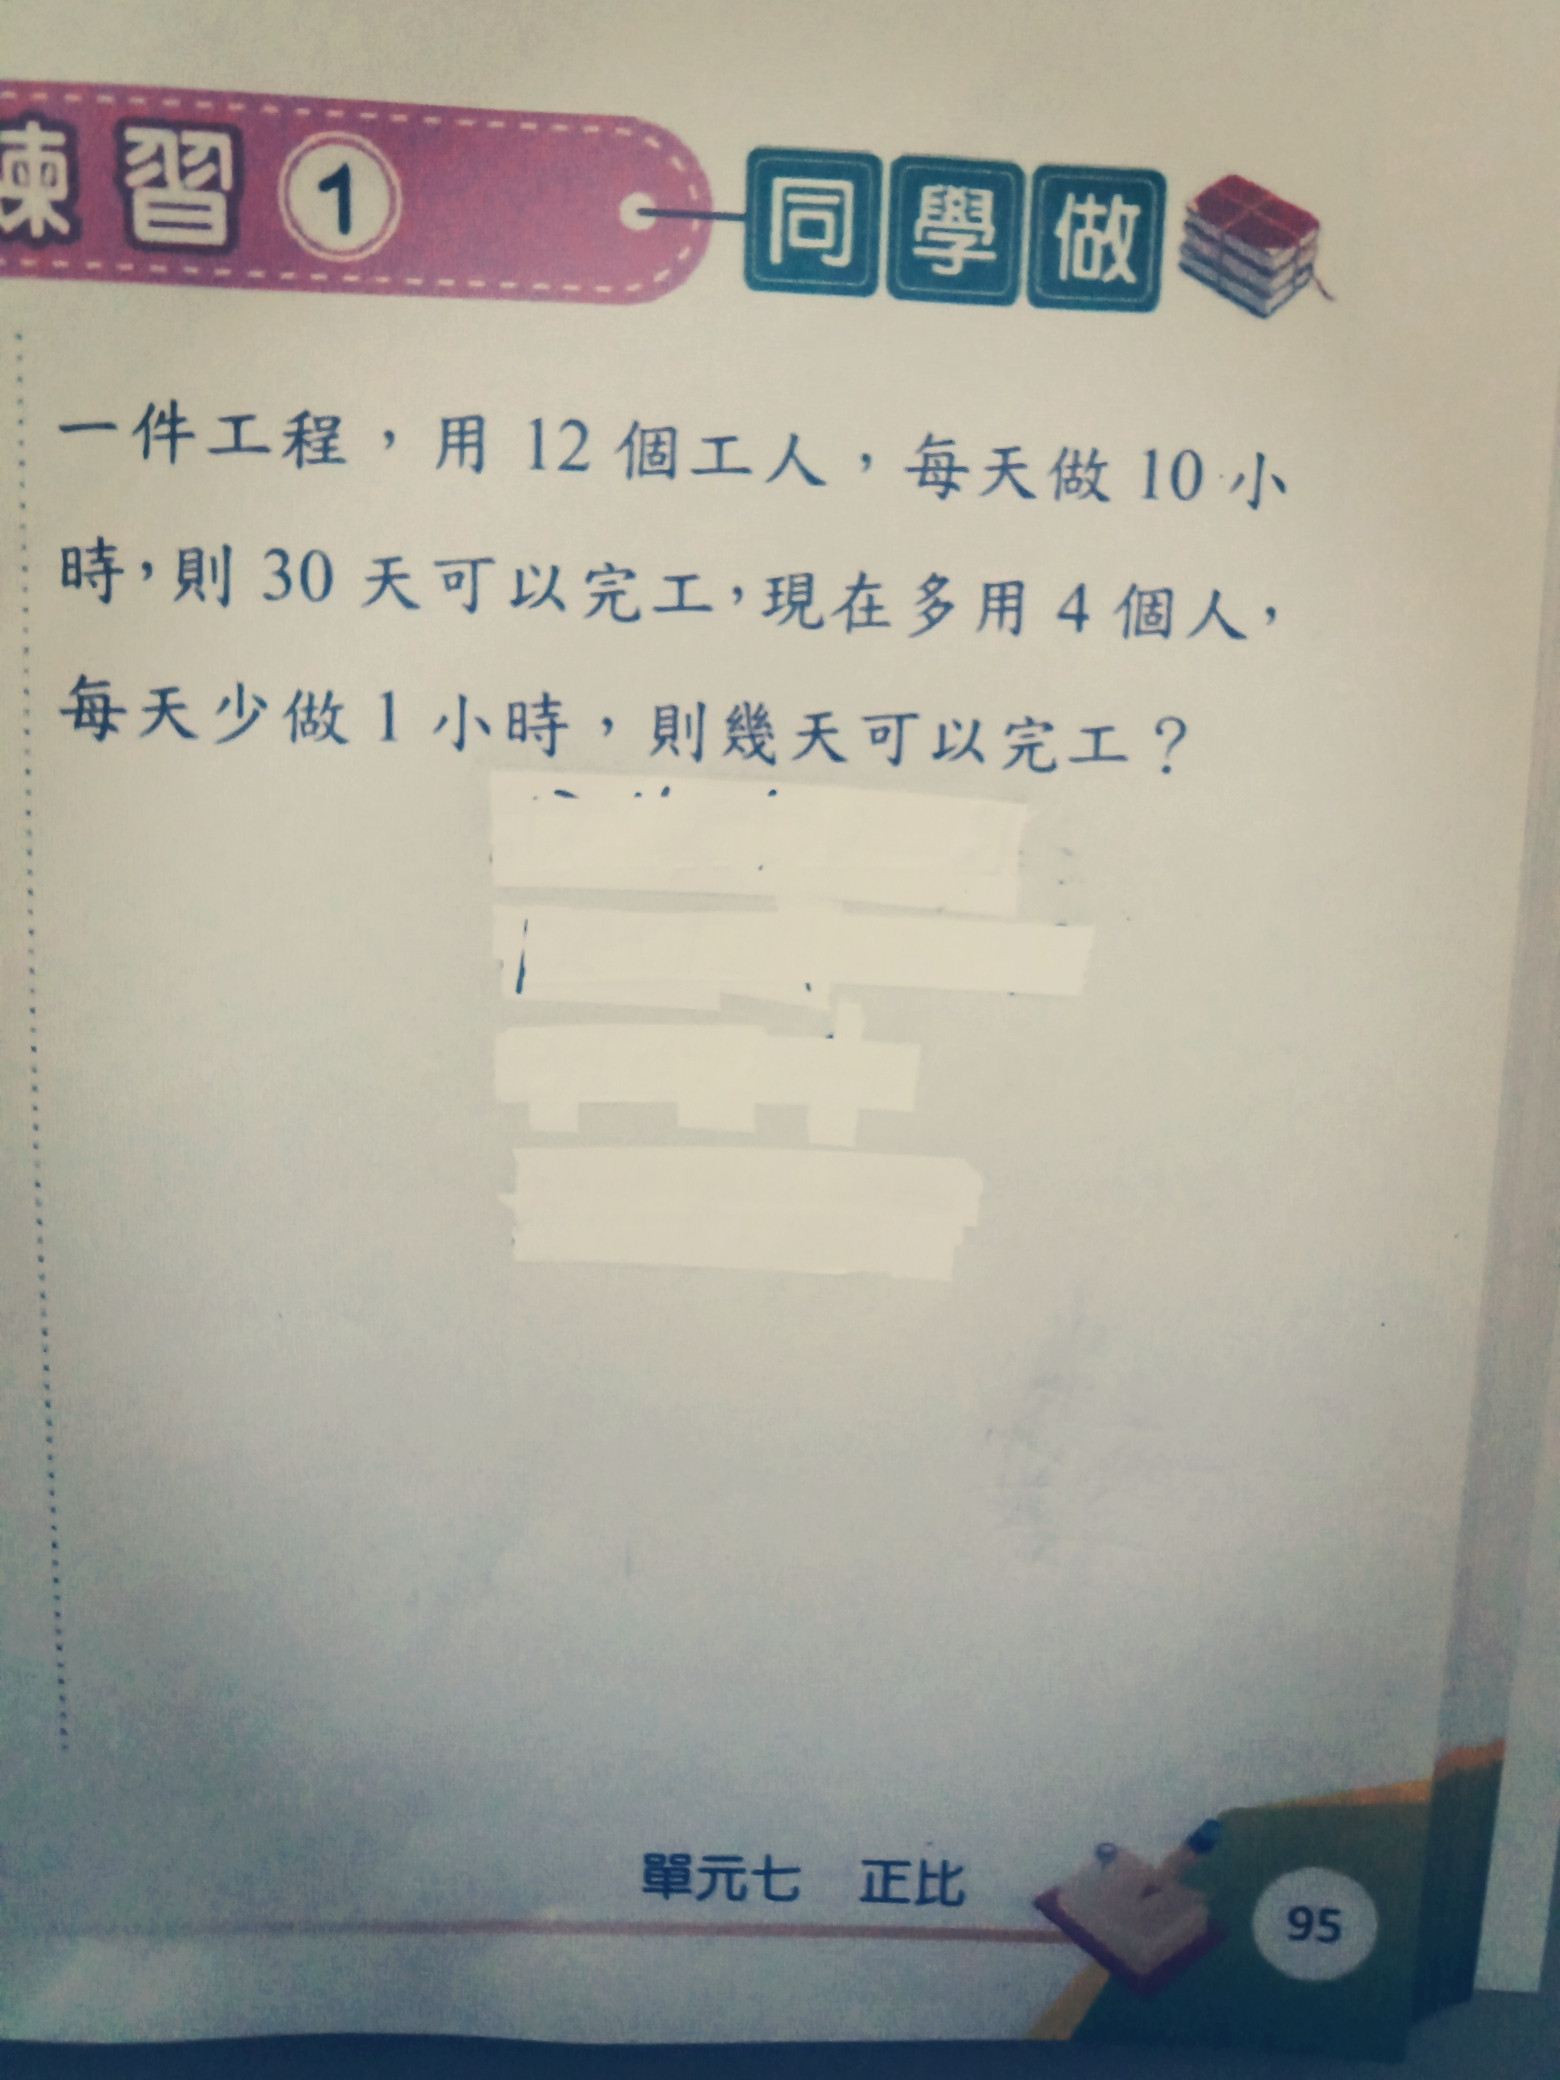 練習1 同學做
一件工程，用 12 個工人，每天做 10 小
時，則 30 天可以完工，現在多用 4 個人，
每天少做 1 小時，則幾天可以完工？
單元七 正比
95